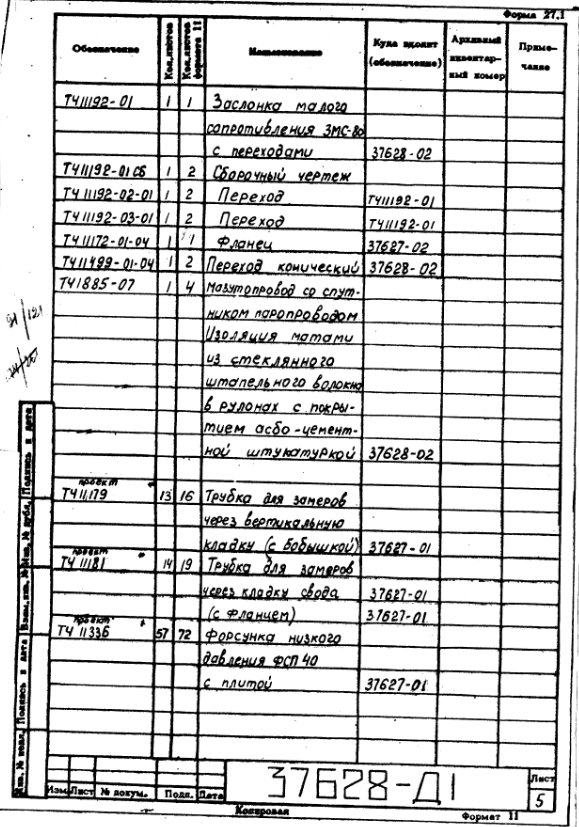 Форма 27.1
Обозначение Кол.листов Кол.листов формата 11 Наименование Куда входит (обозначение) Архивный инвентарный номер Примечание
ТЧ11192-01 1 1 Заслонка малого
сопротивления ЗМС-80
с переходами 37628-02
ТЧ11192-01 СБ 1 2 Сборочный чертеж
ТЧ 11192-02-01 1 2 Переход ТЧ11192-01
ТЧ 11192-03-01 1 2 Переход ТЧ11192-01
ТЧ 11172-01-04 1 1 Фланец 37627-02
ТЧ11499-01-04 1 2 Переход конический 37628-02
ТЧ1885-07 1 4 Мазутопровод со спут-
ником паропроводом
Изоляция матами
из стеклянного
штапельного волокна
в рулонах с покры-
тием асбо-цемент-
ной штукатуркой 37628-02
проект
ТЧ 11179 13 16 Трубка для замеров
через вертикальную
кладку (с бобышкой) 37627-01
проект
ТЧ 11181 14 19 Трубка для замеров
через кладку свода 37627-01
(с фланцем) 37627-01
проект
ТЧ 11336 57 72 Форсунка низкого
давления ФСП 40
с плитой 37627-01
Инв. № подл. Подпись и дата Взам. инв. № Инв. № дубл. Подпись и дата
37628-Д1
Лист
5
Изм. Лист № докум. Подп. Дата
Копировал Формат 11